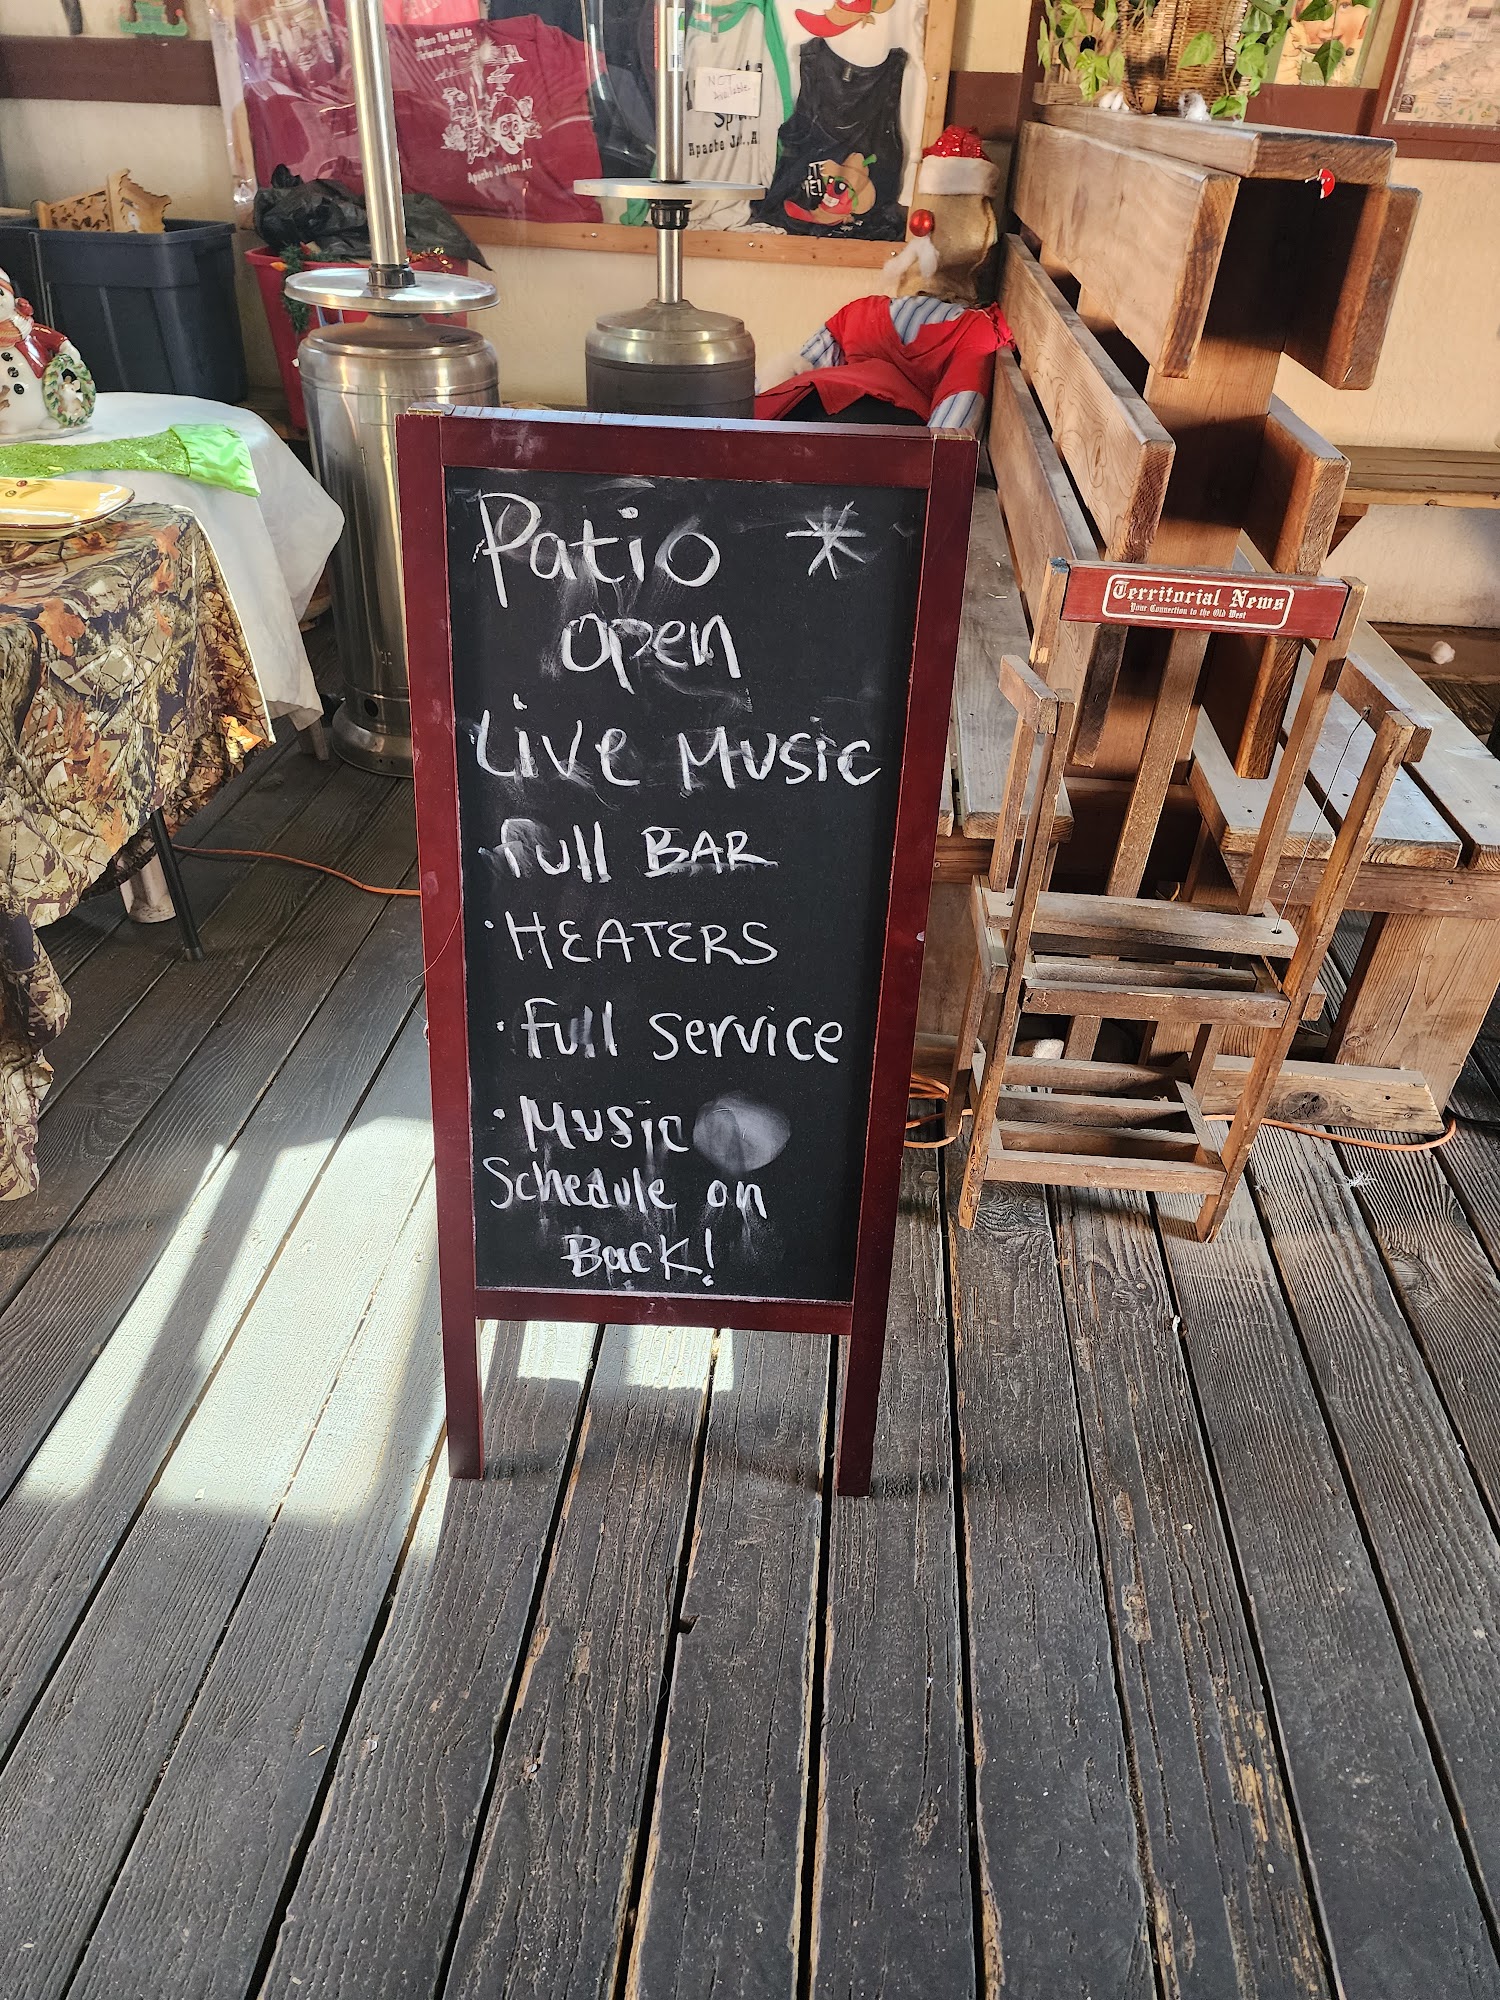 Where The Hell Is
Apache Junction, AZ
NOT
Available
Patio *
open
Live Music
full BAR
· HEATERS
· full service
· Music
Schedule on
Back!
Territorial News
Your Connection to the Old West